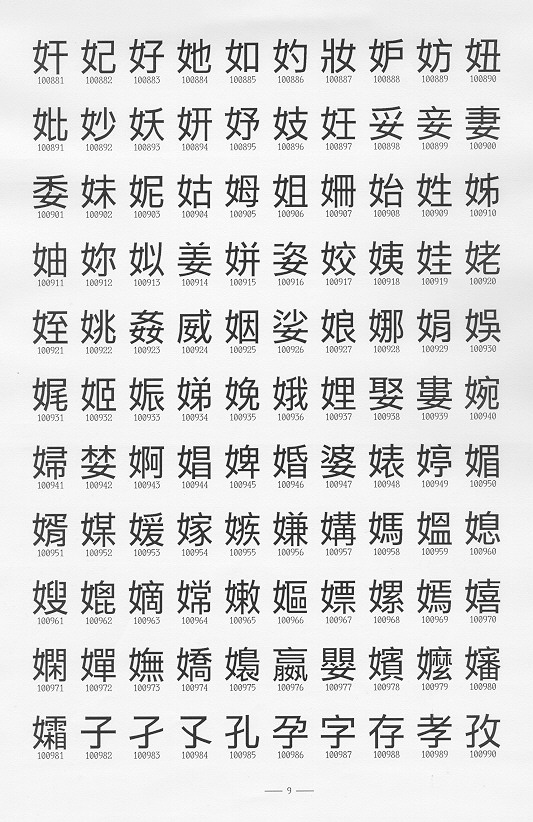 奸 妃 好 她 如 妁 妝 妒 妨 妞
100881 100882 100883 100884 100885 100886 100887 100888 100889 100890
妣 妙 妖 妍 妤 妓 妊 妥 妾 妻
100891 100892 100893 100894 100895 100896 100897 100898 100899 100900
委 妹 妮 姑 姆 姐 姍 始 姓 姊
100901 100902 100903 100904 100905 100906 100907 100908 100909 100910
妯 妳 姒 姜 姘 姿 姣 姨 娃 姥
100911 100912 100913 100914 100915 100916 100917 100918 100919 100920
姪 姚 姦 威 姻 娑 娘 娜 娟 娛
100921 100922 100923 100924 100925 100926 100927 100928 100929 100930
娓 姬 娠 娣 娩 娥 娌 娶 婁 婉
100931 100932 100933 100934 100935 100936 100937 100938 100939 100940
婦 婪 婀 娼 婢 婚 婆 婊 婷 媚
100941 100942 100943 100944 100945 100946 100947 100948 100949 100950
婿 媒 媛 嫁 嫉 嫌 媾 媽 媼 媳
100951 100952 100953 100954 100955 100956 100957 100958 100959 100960
嫂 媲 嫡 嫦 嫩 嫗 嫖 嫘 嫣 嬉
100961 100962 100963 100964 100965 100966 100967 100968 100969 100970
嫻 嬋 嫵 嬌 嬝 嬴 嬰 嬪 嬤 嬸
100971 100972 100973 100974 100975 100976 100977 100978 100979 100980
孀 子 孑 孓 孔 孕 字 存 孝 孜
100981 100982 100983 100984 100985 100986 100987 100988 100989 100990
— 9 —